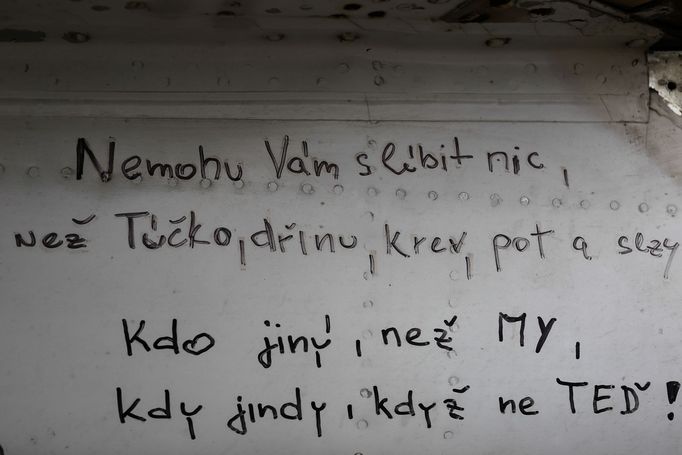 Nemohu Vám slíbit nic,
než Túčko, dřinu, krev, pot a slzy
Kdo jiný, než MY,
kdy jindy, když ne TEĎ!